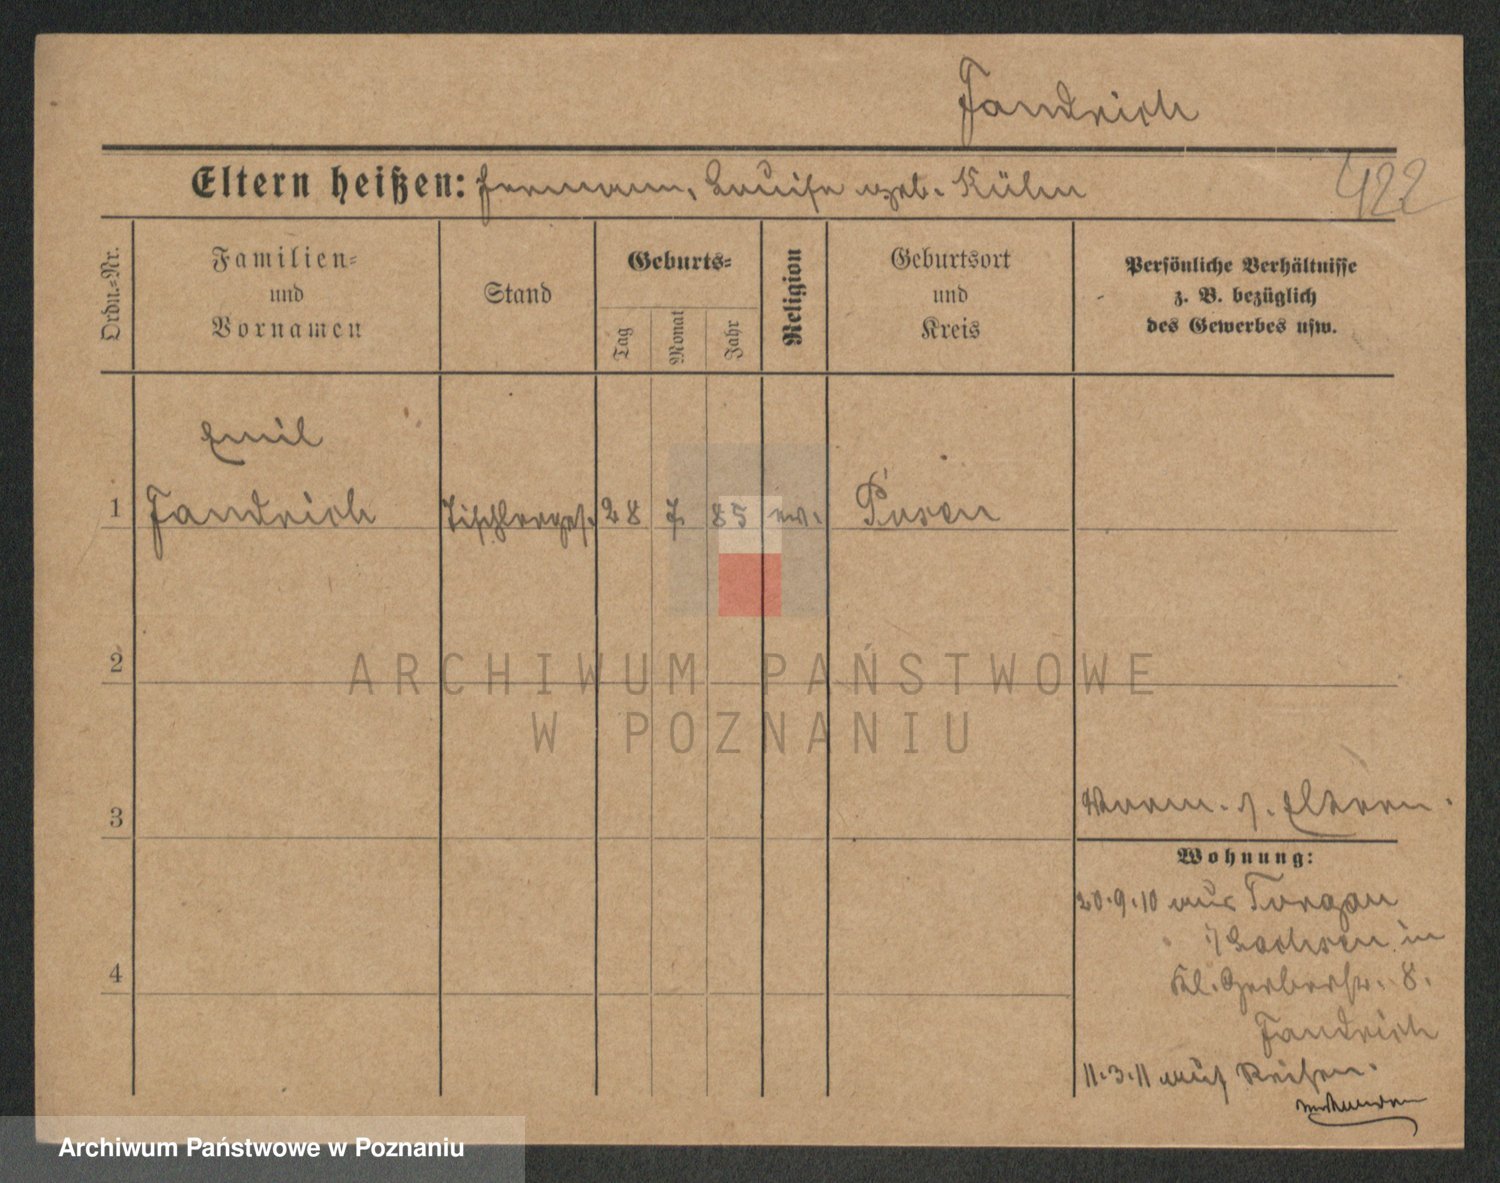 Fandrich
Eltern heißen: Hermann, Louise geb. Kühn
422
Ordn.-Nr.
Familien-
und
Vornamen
Stand
Geburts-
Tag
Monat
Jahr
Religion
Geburtsort
und
Kreis
Persönliche Verhältnisse
z. B. bezüglich
des Gewerbes usw.
Emil
1 Fandrich Tischlerges. 28 7. 85 ev. Posen
2
ARCHIWUM PAŃSTWOWE
W POZNANIU
3
Verm. s. Eltern.
Wohnung:
20.9.10 aus Torgau
i/Sachsen in
Kl. Gerberstr. 8.
4
Fandrich
11.3.11 auf Reisen.
Archiwum Państwowe w Poznaniu